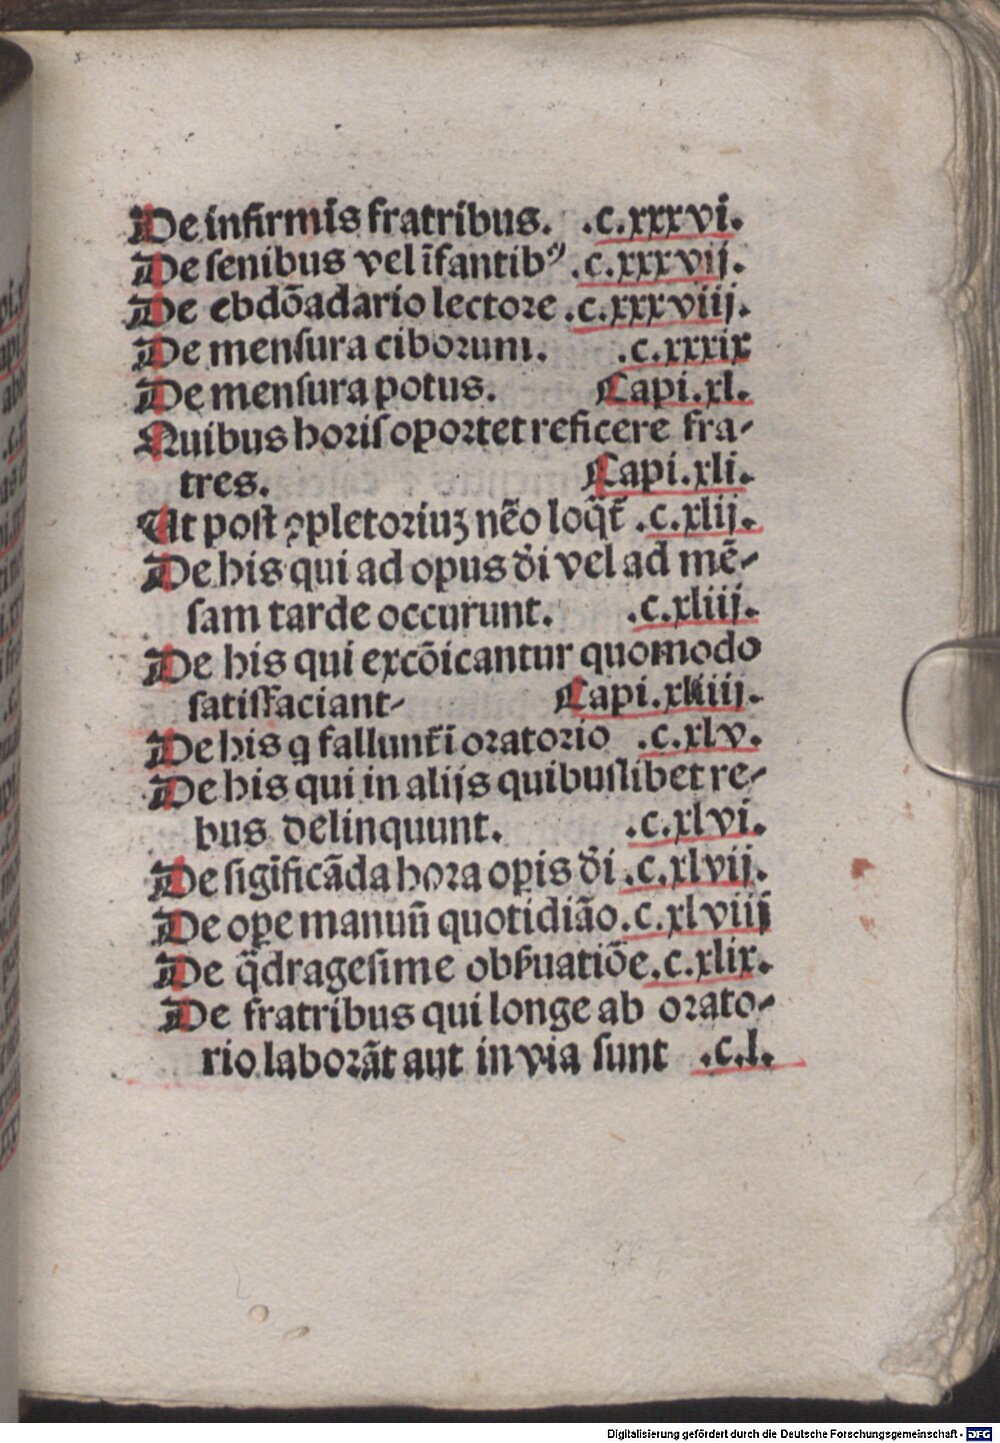 De infirmis fratribus. .c.xxxvi.
De ſenibus vel īfantibꝰ .c.xxxvij.
De ebdōadario lectoꝛe .c.xxxviij.
De menſura ciboꝛum. .c.xxxix
De menſura potus. Capi.xl.
Quibus hoꝛiſ opoꝛtet reficere fra⸗
tres. Capi.xli.
Ut poſt ꝯpletoꝛiuꝫ nēo loq̄t̄ .c.xlij.
De his qui ad opus d̄i vel ad mē⸗
ſam tarde occurunt. .c.xliij.
De his qui excōicantur quomodo
ſatiſfaciant⸗ Capi.xliiij.
De his q fallunt̄ i oꝛatoꝛio .c.xlv.
De his qui in alijs quibuſlibet re⸗
bus delinquunt. .c.xlvi.
De ſigīficāda hoꝛa oꝑis d̄i .c.xlvij.
De oꝑe manuū quotidiāo.c.xlviij
De q̄drageſime obẜuatiōe.c.xlix.
De fratribus qui longe ab oꝛato⸗
rio laboꝛāt aut in via ſunt .c.l.
Digitalisierung gefördert durch die Deutsche Forschungsgemeinschaft - DFG